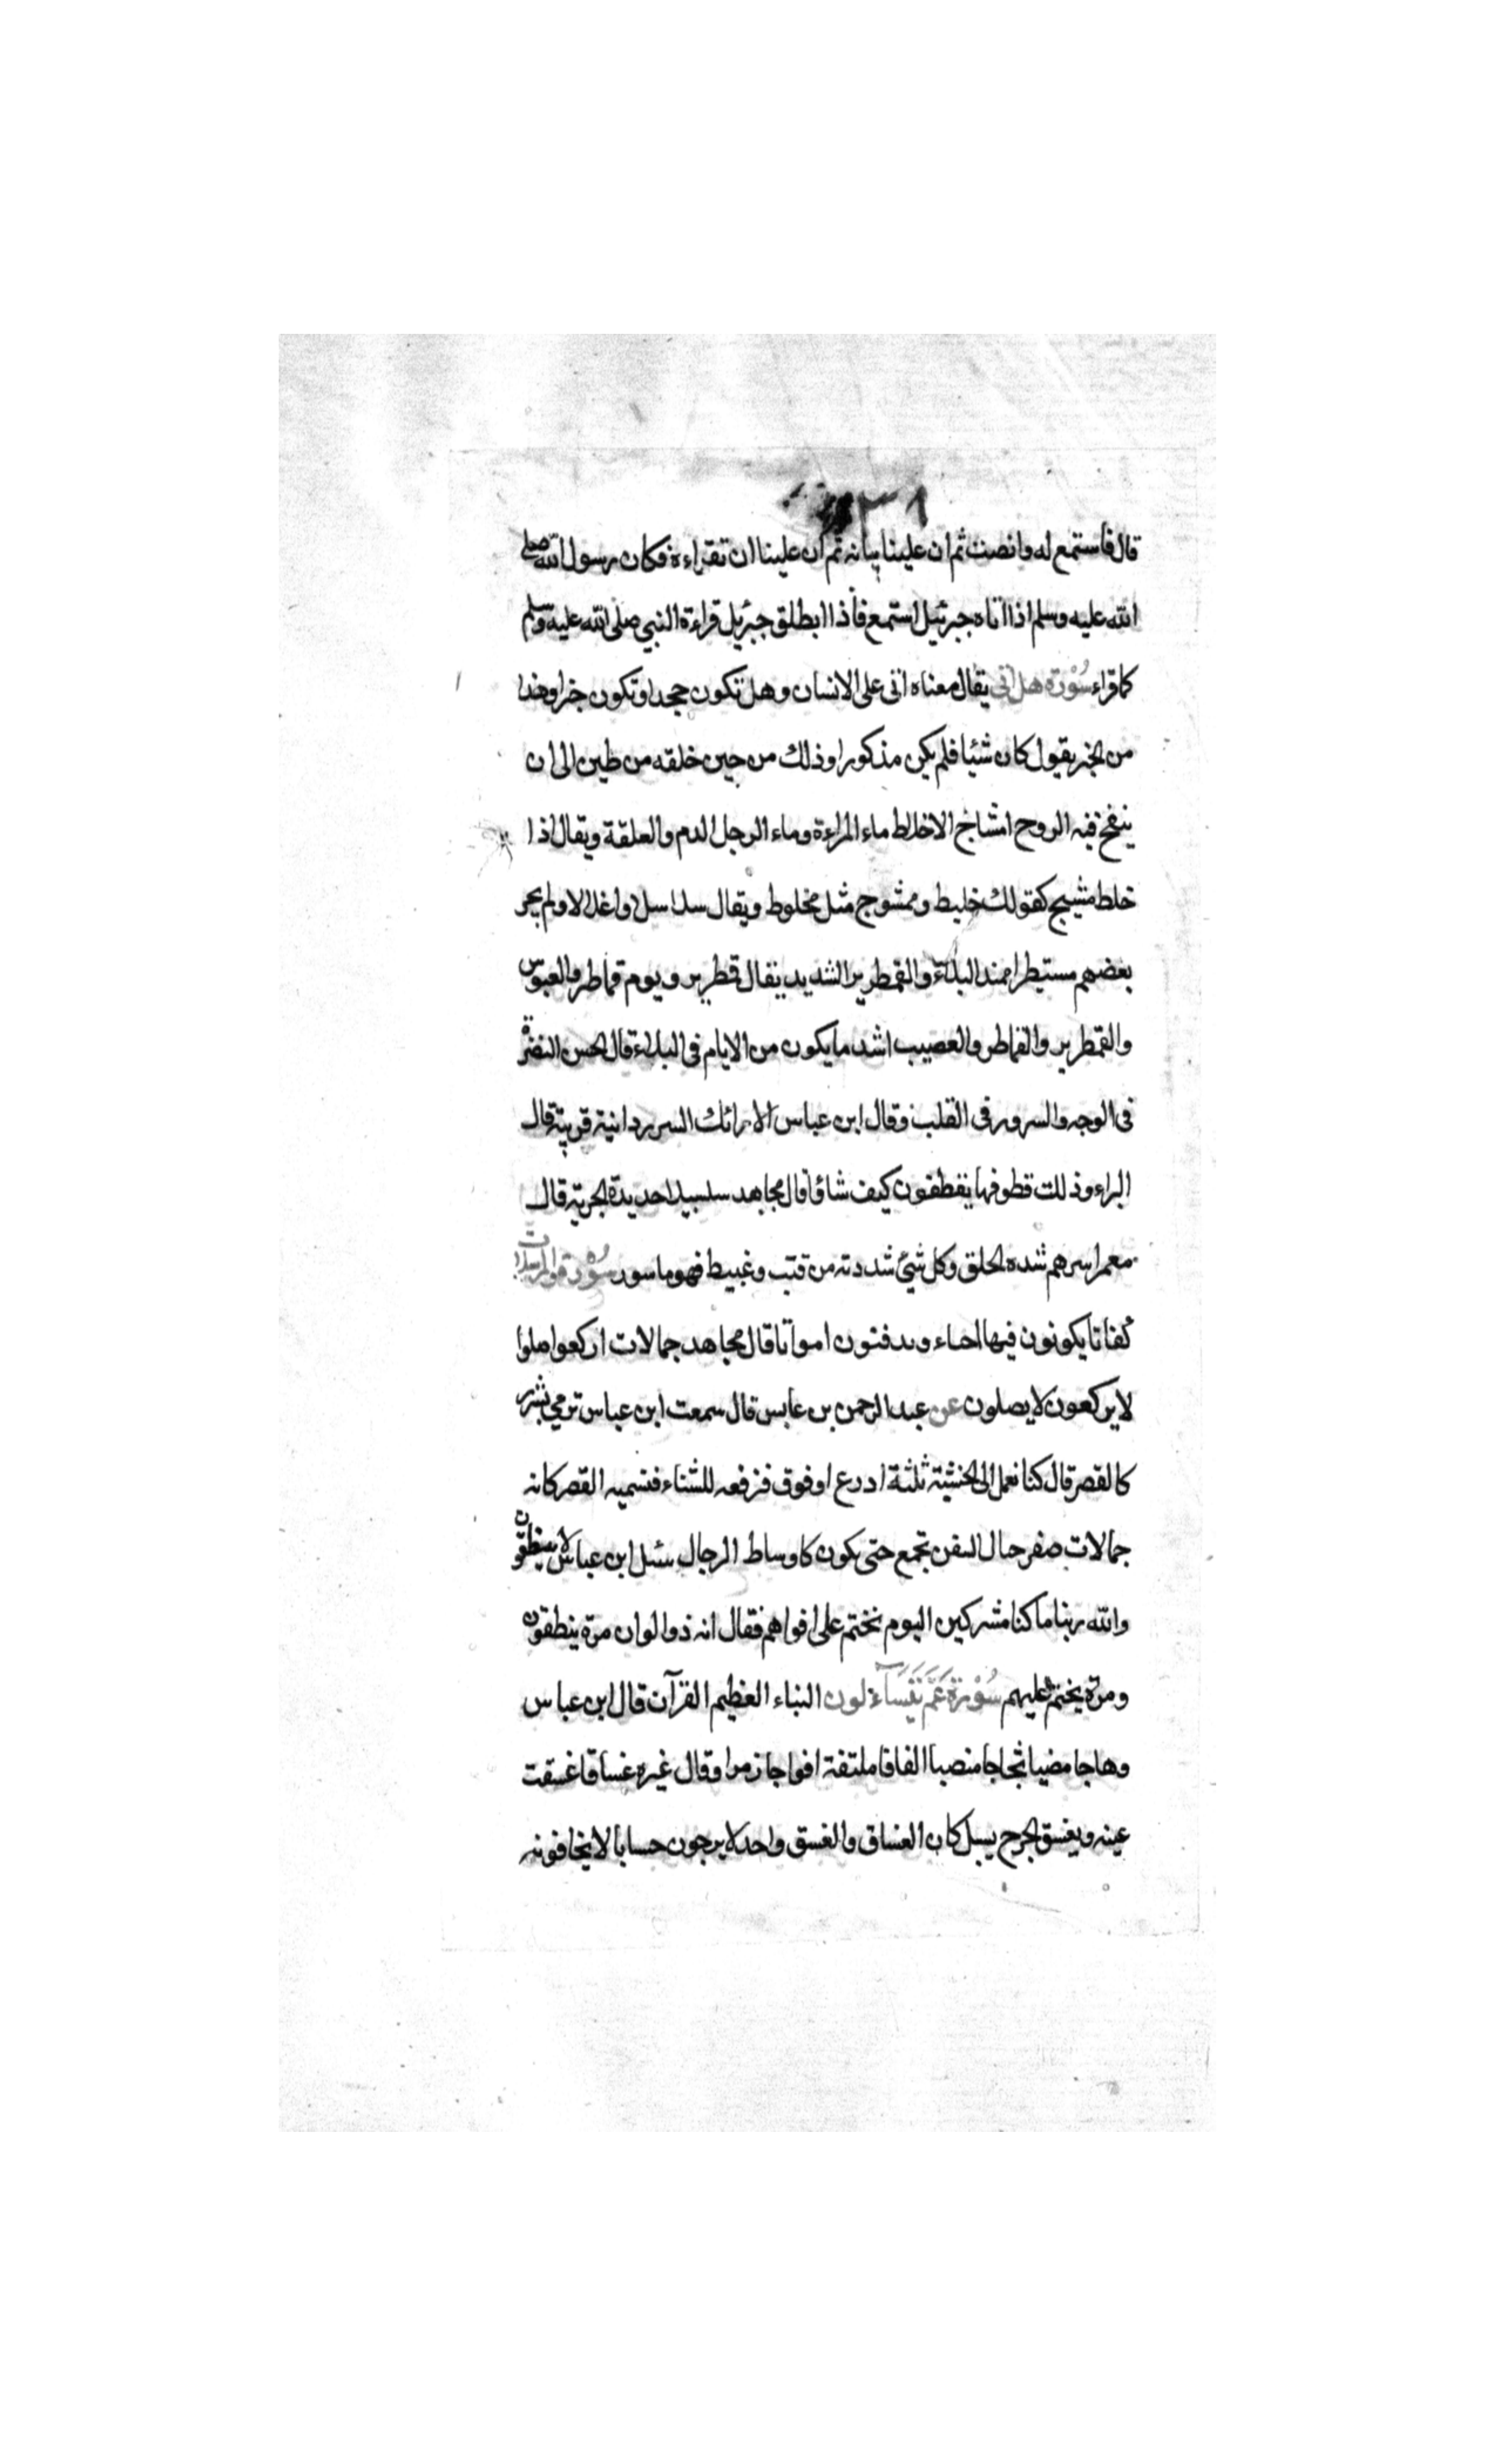 ٣٨
قال فاستمع له وانصت ثم ان علينا بيانه ثم ان علينا ان تقراءه فكان رسول الله صلى
الله عليه وسلم اذا اتاه جبرئيل استمع فأذا ابطلق جبرئيل قراءة النبي صلى الله عليه وسلم
كما قراء سورة هل اتى يقال معناه اتى على الانسان وهل تكون جحدا وتكون خبرا وهذا
من الخبر يقول كان شئيا فلم يكن مذكورا وذلك من حين خلقه من طين الى ان
ينفخ فيه الروح امشاج الاخلاط ماء المراءة وماء الرجل الدم والعلقة ويقال اذا
خلط مشيج كقولك خليط وممشوج مثل مخلوط ويقال سلاسلا واغلالا ولم يجر
بعضهم مستيطرا ممتد البلاء والقمطرير الشديد يقال قمطرير ويوم قماطر والعبوس
والقمطرير والقماطر والعصيب اشد ما يكون من الايام في البلاء قال الحسن النضرة
في الوجه والسرور في القلب وقال ابن عباس الارائك السرر دانية قريبة قال
البراء وذللت قطوفها يقطفون كيف شاؤا قال مجاهد سلسبيلا حديدة الجرية قال
معمر اسرهم شدة الخلق وكل شئ شددته من قتب وغبيط فهو ماسور سورة والمرسلات
كفاتا يكونون فيها احياء ويدفنون امواتا قال مجاهد جمالات اركعوا صلوا
لا يركعون لا يصلون عن عبد الرحمن بن عابس قال سمعت ابن عباس ترمي بشرر
كالقصر قال كنا نعمل الى الخشبة ثلثة اذرع او فوق فنرفعه للشتاء فنسميه القصر كانه
جمالات صفر حبال السفن تجمع حتى يكون كاوساط الرجال سئل ابن عباس لا ينطقون
والله ربنا ما كنا مشركين اليوم نختم على افواههم فقال انه ذو الوان مرة ينطقون
ومرة يختم عليهم سورة عم يتساءلون النباء العظيم القرآن قال ابن عباس
وهاجا مضيا ثجاجا منصبا الفافا ملتفة افواجا زمرا وقال غيره غساقا غسقت
عينه ويغسق الجرح يسيل كان الغساق والغسق واحد لا يرجون حسابا لا يخافونه